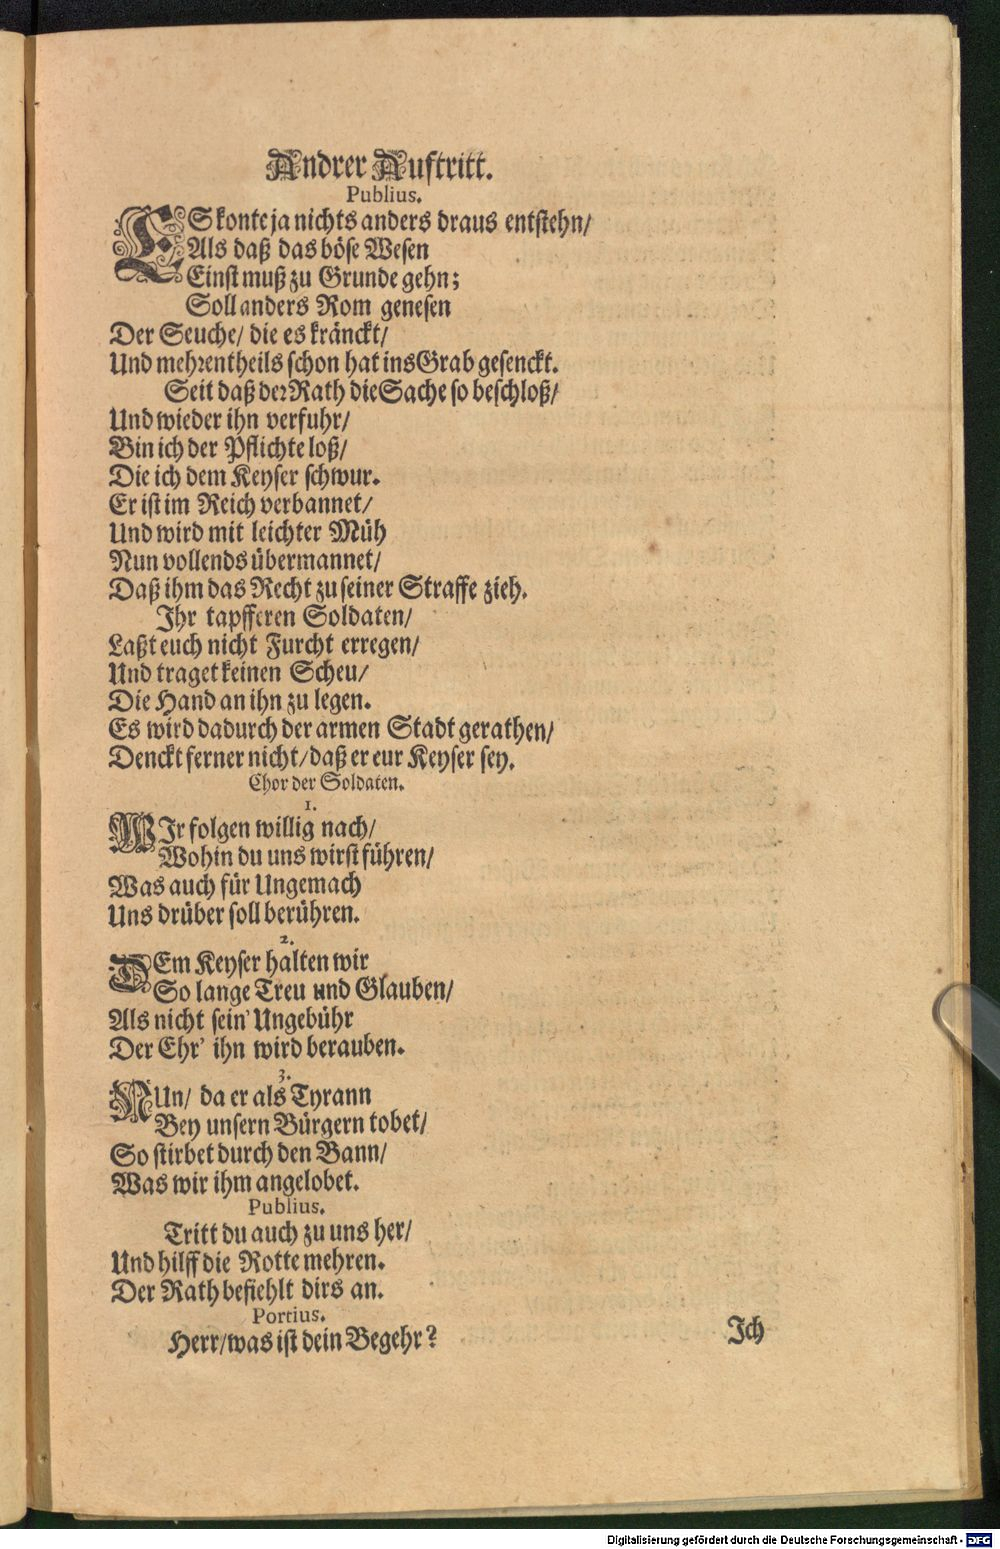 Andrer Auftritt.
Publius.
ES konte ja nichts anders draus entstehn/
Als daß das böse Wesen
Einst muß zu Grunde gehn;
Soll anders Rom genesen
Der Seuche/ die es kränckt/
Und mehrentheils schon hat ins Grab gesenckt.
Seit daß der Rath die Sache so beschloß/
Und wieder ihn verfuhr/
Bin ich der Pflichte loß/
Die ich dem Keyser schwur.
Er ist im Reich verbannet/
Und wird mit leichter Müh
Nun vollends übermannet/
Daß ihm das Recht zu seiner Straffe zieh.
Ihr tapfferen Soldaten/
Laßt euch nicht Furcht erregen/
Und traget keinen Scheu/
Die Hand an ihn zu legen.
Es wird dadurch der armen Stadt gerathen/
Denckt ferner nicht/ daß er eur Keyser sey.
Chor der Soldaten.
1.
WIr folgen willig nach/
Wohin du uns wirst führen/
Was auch für Ungemach
Uns drüber soll berühren.
2.
DEm Keyser halten wir
So lange Treu und Glauben/
Als nicht sein' Ungebühr
Der Ehr' ihn wird berauben.
3.
NUn/ da er als Tyrann
Bey unsern Bürgern tobet/
So stirbet durch den Bann/
Was wir ihm angelobet.
Publius.
Tritt du auch zu uns her/
Und hilff die Rotte mehren.
Der Rath befiehlt dirs an.
Portius.
Herr/ was ist dein Begehr?
Ich
Digitalisierung gefördert durch die Deutsche Forschungsgemeinschaft - DFG